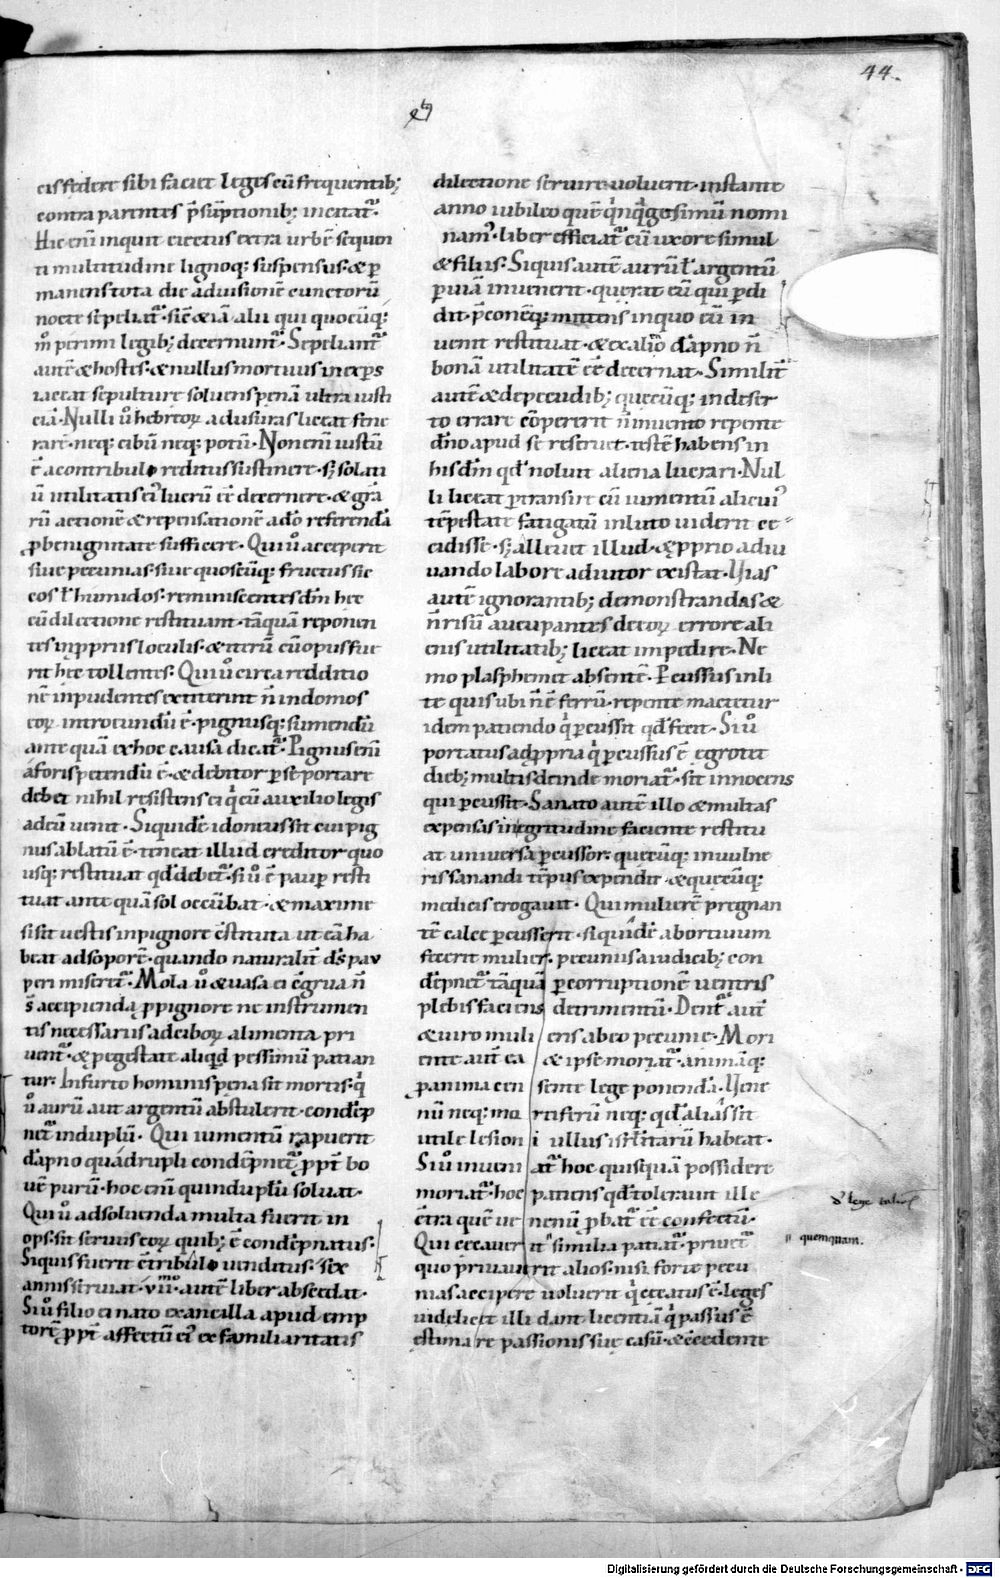 44.
eis federe sibi faciet leges cū frequentib;
contra parentes p̄sūptionib; incitat᷒.
Hic enī inquit eiectus extra urbē sequen
ti multitudine lignoq; suspensus. & ꝑ
manens tota die ad uisionē cunctorū
nocte sepeliat᷒. sic̄ & iā alii qui quocūq;
m̊ perimi legib; decernunt᷒. Sepeliant᷒
autē & hostes. & nullus mortuus in exꝑs
iaceat sepulture soluens penā ultra iusti
ciā. Nulli ů hebreoꝝ ad usuras liceat fene
rare. neq; cibū neq; potū. Non enī iustū
ē a contribulo reditus sustinere. sꝫ solati
ū utilitatis ei᷒ lucrū eē decernere. & gra
rū actionē & repensationē a dō referendā
ꝓ benignitate sufficere. Qui ů acceperit
siue pecunias. siue quoscūq; fructus sic
cos ł humidos. reminiscentes dm̄ hec
cū dilectione restituant. tāquā reponen
tes in ꝓpriis loculis. & iterū cū opus fue
rit hec tollentes. Qui ů circa redditio
nē inpudentes extiterint n̄ in domos
eoꝝ introeundū ē. pignusq; sumendū
ante quā ex hoc causa dicat᷒. Pignus enī
a foris petendū ē. & debitor ꝑ se portare
debet nihil resistens ei q̇ cū auxilio legis
ad eū uenit. Siquidē idoneus sit cui pig
nus ablatū ē. teneat illud creditor quo
usq; restituat qd̄ debet᷒. si ů ē pauꝑ resti
tuat ante quā sol occūbat. & maxime
si sit uestis in pignore c̄stituta ut eā ha
beat ad soporē. quando naturalit̄ ds̄ pau
peri miseret᷒. Mola ů & uasa ei c̄grua n̄
s̄ accipienda ꝓ pignore ne instrumen
tis necessariis ad ciboꝝ alimenta pri
uent᷒. & p egestate aliqd̄ pessimū patian
tur. In furto hominis pena sit mortis. q̇
ů aurū aut argentū abstulerit. condēp
net᷒ in duplū. Qui iumentū rapuerit
dāpno quadrupli condēpnet᷒. ꝓpt̄ bo
uē purū. hoc enī quinduplū soluat.
Qui ů ad soluenda multa fuerit in
ops. sit seruus eoꝝ quib; ē condēpnatus.
Siquis fuerit c̄tribulo uenditus. sex
annis seruiat. vii᷒ᵐᵒ. autē liber abscedat.
Si ů filio ei nato ex ancilla apud emp
torē ꝓpt̄ affectū ei᷒ & familiaritatis
dilectione seruire uoluerit. instante
anno iubileo quē q̇nq̇gesimū nomi
nam᷒. liber efficiat᷒ cū uxore simul
& filiis. Siquis autē aurū ł argentū
ꝑ uiā inuenerit. querat eū qui ꝑdi
dit. p̄conēq; mittens in quo eū in
uenit restituat. & ex alio dāpno n̄
bonā utilitatē eē decernat. Similit̄
autē & de pecudib; quecūq; in deser
to errare cōpererit n̄ inuento repente
dn̄o apud se reseruet. testē habens in
his dm̄ qd̄ noluit aliena lucrari. Nul
li liceat ꝑtransire cū iumentū alicui᷒
tēpestate fatigatū in luto uiderit ce
cidisse. sꝫ alleuet illud. & ꝓprio adiu
uando labore adiutor existat. Vias
autē ignorantib; demonstrandas &
n̄ risū aucupantes de eoꝝ errore ali
enis utilitatib; liceat impedire. Ne
mo plasphemet absentē. Percussus in li
te quis ubi n̄ ē ferrū. repente mactetur
idem patiendo q̇ ꝑcussit qd̄ fecit. Si ů
portatus ad ꝓpria q̇ ꝑcussus ē egrotet
dieb; multis deinde moriat᷒. sit innocens
qui ꝑcussit. Sanato autē illo & multas
expensas in egritudine faciente restitu
at uniuersa ꝑcussor. quecūq; in uulne
ris sanandi tēpus expendit. & quecūq;
medicis erogauit. Qui mulierē pregnan
tē calce ꝑcusserit. siquidē abortiuum
fecerit mulier. pecuniis a iudicib; con
dēpnet᷒ tāquā ꝑ corruptionē uentris
plebis faciens detrimentū. Dent᷒ aut̄
& uiro mulieris ab eo pecunie. Mori
ente aut̄ ea & ipse moriat᷒. animāq;
ꝑ anima censente lege ponenda. Vene
nū neq; mortiferū neq; qd̄ alias sit
utile lesioni ullus isrl̄itarū habeat.
Si ů inueniat᷒ hoc quisquā possidere
moriat᷒. hoc patiens qd̄ tolerauit ille
c̄tra quē uenenū ꝓbat᷒ eē confectū.
Qui cecauerit" similia patiat᷒. priuet᷒
quo priuauerit alios. nisi forte pecu
nias accipere uoluerit q̇ cecatus ē. leges
uidelicet illi dant licentiā q̇ passus ē
estimare passionis sue casū. & c̄cedente
d' lege talionis
" quemquam.
Digitalisierung gefördert durch die Deutsche Forschungsgemeinschaft - DFG